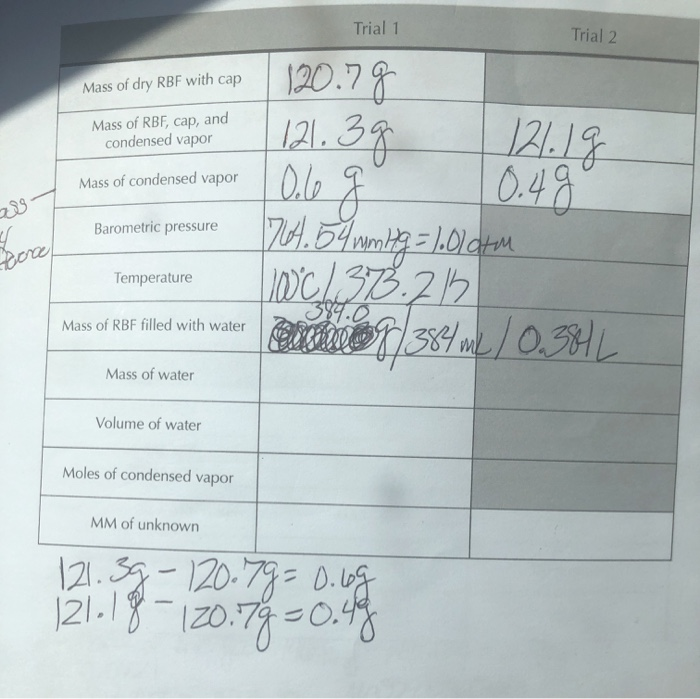 Trial 1 Trial 2
Mass of dry RBF with cap 120.7g
Mass of RBF, cap, and
condensed vapor 121.3g 121.1g
Mass of condensed vapor 0.6g 0.4g
Barometric pressure 764.54 mmHg = 1.01 atm
Temperature 100°C / 373.2 K
384.0
Mass of RBF filled with water g / 384 mL / 0.384 L
Mass of water
Volume of water
Moles of condensed vapor
MM of unknown
121.3g - 120.7g = 0.6g
121.1g - 120.7g = 0.4g